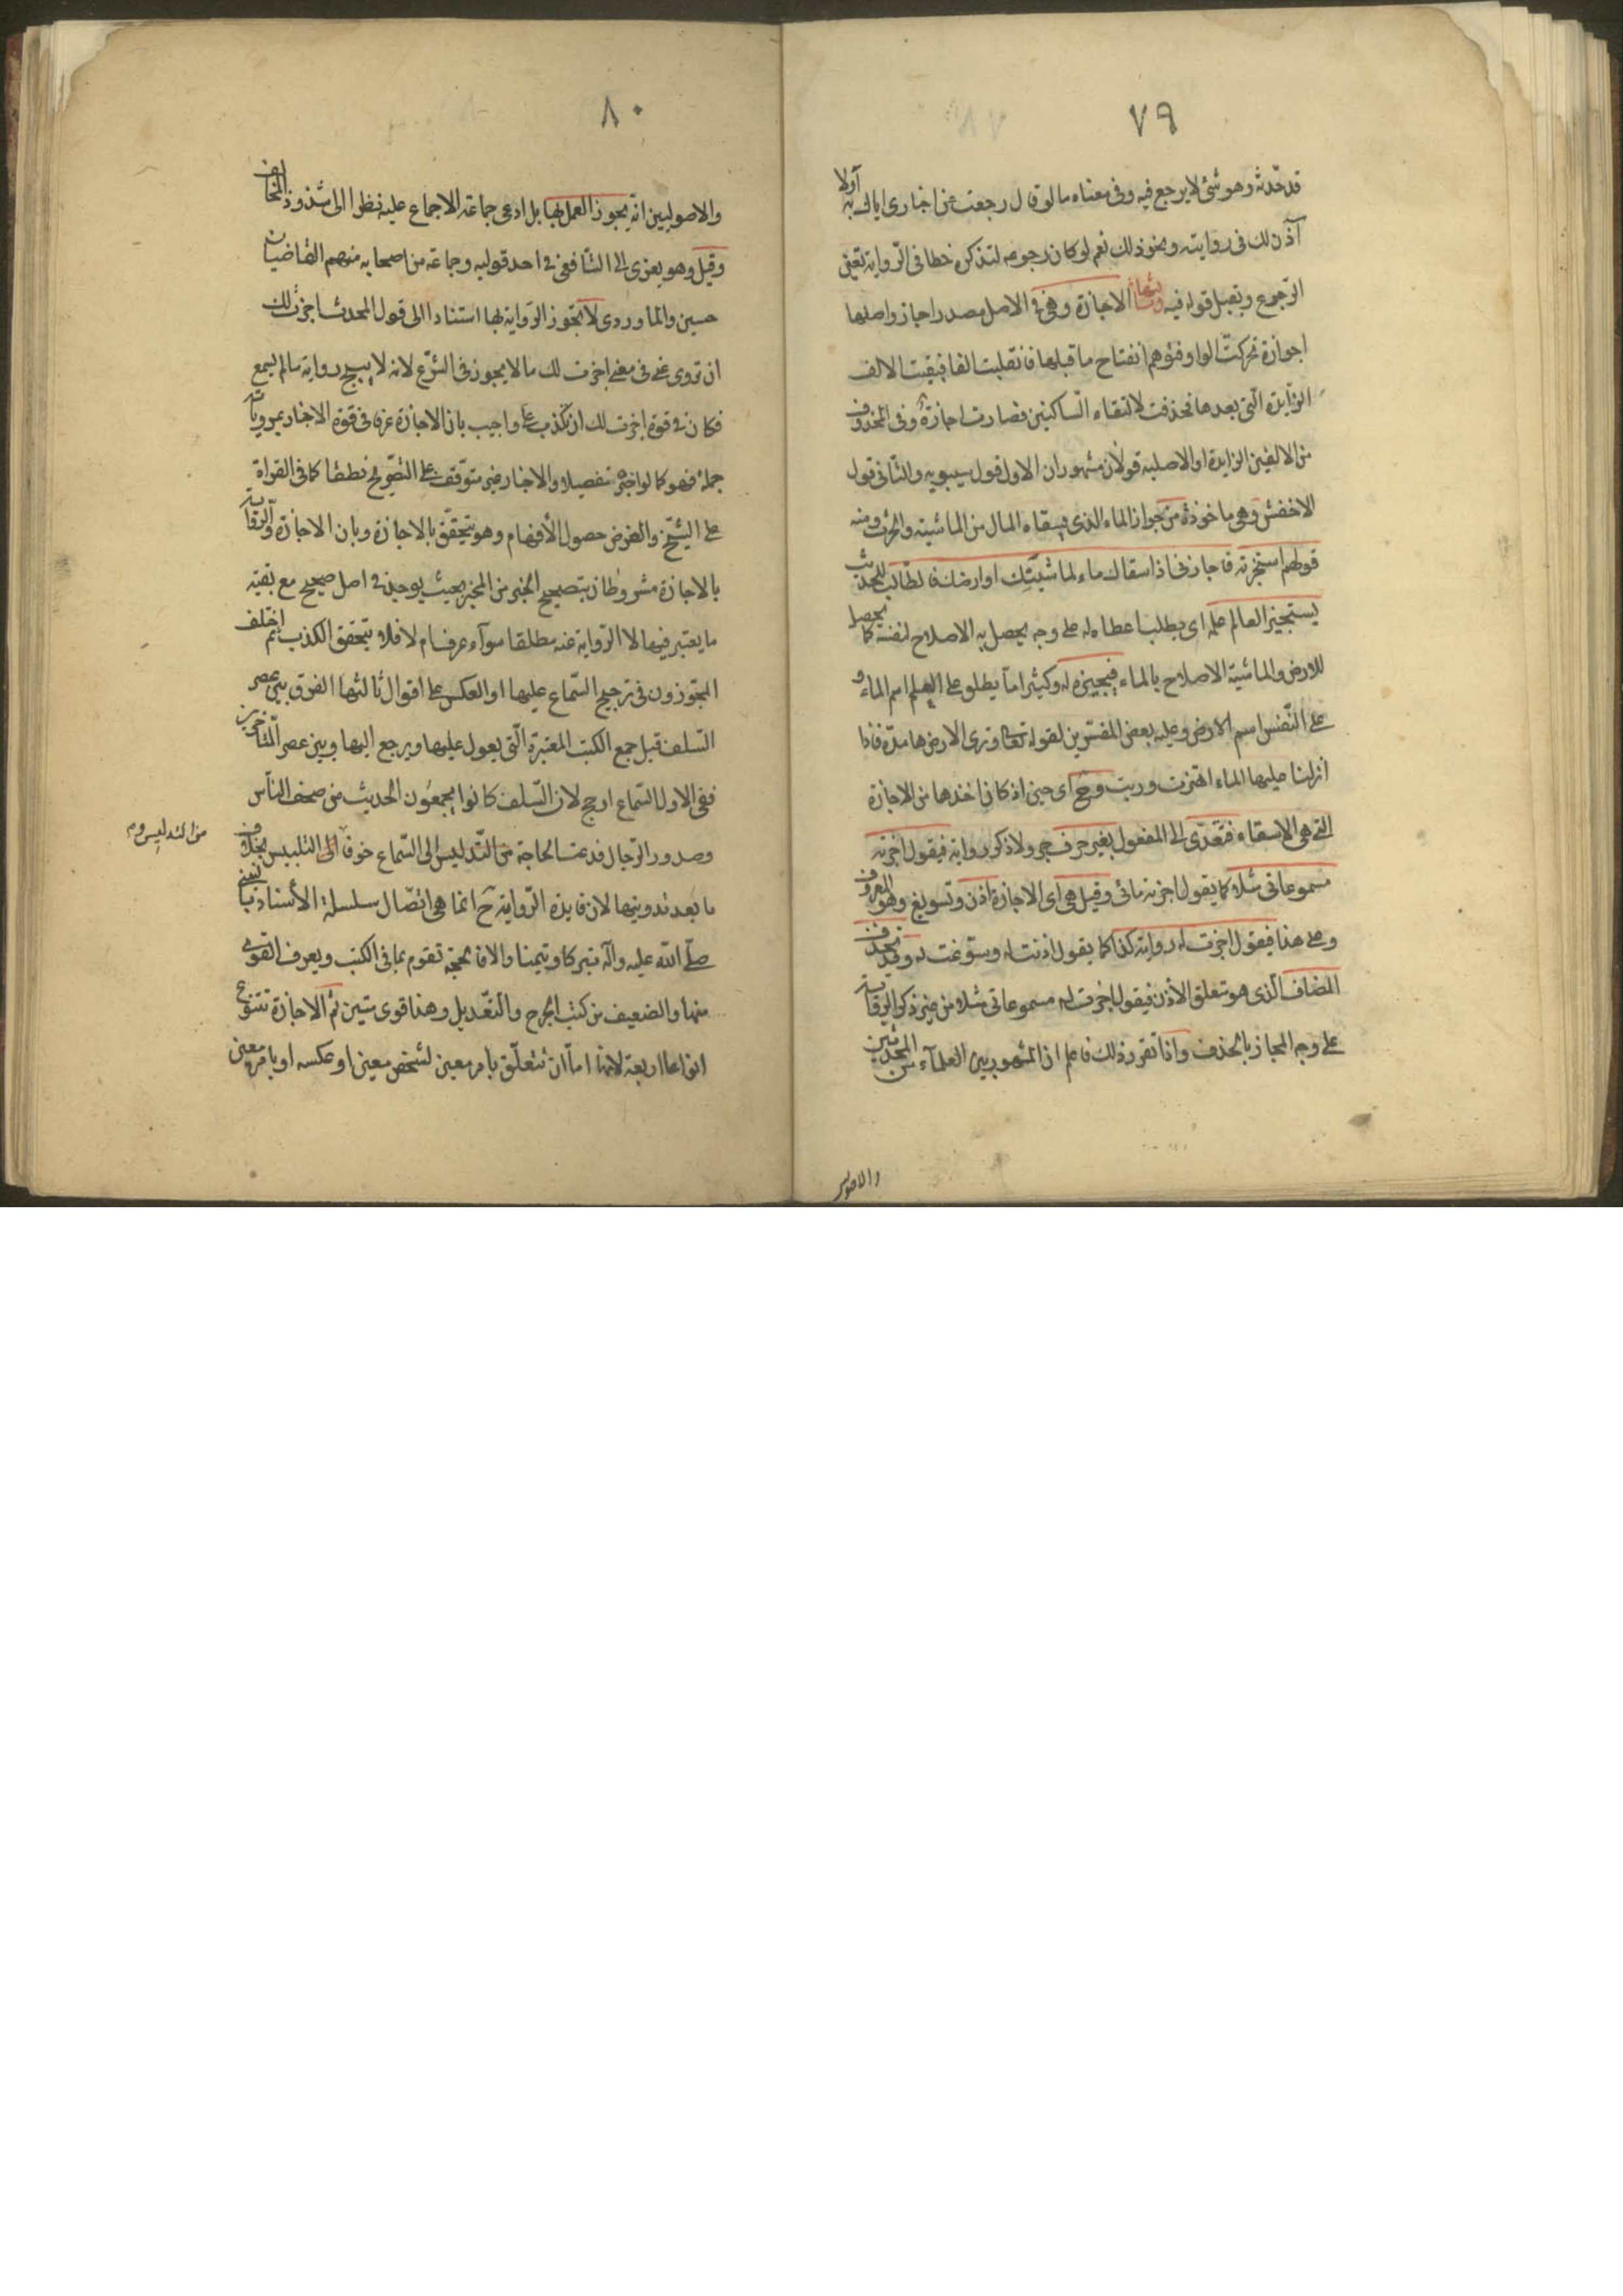 ٧٩
قد حدثه وهو شئ لا يرجع فيه وفى معناه ما لو قال رجعت عن اخبارى اياك به أولا
آذن لك فى روايته ونحو ذلك نعم لو كان رجوعه لتذكره خطا فى الرواية تعين
الرجوع ويقبل قوله فيه وثالثها الاجازة وهى فى الاصل مصدر اجاز واصلها
اجوازة تحركت الواو فتوهم انفتاح ما قبلها فانقلبت الفا فبقيت الالف
الزايدة التى بعدها فحذفت لالتقاء الساكنين فصارت اجازة وفى المحذوف
من الالفين الزايدة او الاصلية قولان مشهوران الاول قول سيبويه والثانى قول
الاخفش وهى ماخوذة من جواز الماء الذى يسقاه المال من الماشية والحرث ومنه
قولهم استجزته فاجازنى اذا سقاك ماء لماشيتك او ارضك فالطالب للحديث
يستجيز العالم علمه اى يطلب اعطاءه له على وجه يحصل به الاصلاح لنفسه كما يحصل
للارض والماشية الاصلاح بالماء فيجيزه له وكثيرا ما يطلق على العلم اسم الماء و
على النفس اسم الارض وعليه بعض المفسرين لقوله تعالى وترى الارض هامدة فاذا
أنزلنا عليها الماء اهتزت وربت وح اى حين اذ كان اخذها من الاجازة
التى هى الاسقاء فتتعدى الى المفعول بغير حرف جر ولا ذكر رواية فيقول اجزته
مسموعاتى مثلا كما يقول اجزته مائى وقيل هى اى الاجازة اذن وتسويغ وهو المعروف
وعلى هذا فيقول اجزت له رواية كذا كما يقول اذنت له وسوغت له وقد يحذف
المضاف الذى هو متعلق الاذن فيقول اجزت له مسموعاتى مثلا من غير ذكر الرواية
على وجه المجاز بالحذف واذا تقرر ذلك فاعلم ان المشهور بين العلمآء من المحدثين
والاصوليين
٨٠
والاصوليين انه يجوز العمل بها بل ادعى جماعة الاجماع عليه نظرا الى شذوذ المخالف
وقيل وهو يعزى الى الشافعى فى احد قوليه وجماعة من اصحابه منهم القاضيان
حسين والماوردى لا تجوز الرواية بها استنادا الى قول المحدث اجزت لك
ان تروى عنى فى معنى اجزت لك ما لا يجوز فى الشرع لانه لا يبيح رواية ما لم يسمع
فكان فى قوة اجزت لك ان تكذب على واجيب بان الاجازة عرفا فى قوة الاخبار بمروياته
جملة فهو كما لو اخبره تفصيلا والاخبار غير متوقف على التصريح نطقا كما فى القراءة
على الشيخ والغرض حصول الأفهام وهو يتحقق بالاجازة وبان الاجازة والرواية
بالاجازة مشروطان بتصحيح الخبر من المخبر بحيث يوجد فى اصل صحيح مع بقية
ما يعتبر فيها لا الرواية عنه مطلقا سوآء عرف ام لا فلا يتحقق الكذب ثم اختلف
المجوزون فى ترجيح السماع عليها او العكس على اقوال ثالثها الفرق بين عصر
السلف قبل جمع الكتب المعتبرة التى يعول عليها ويرجع اليها وبين عصر المتأخرين
ففى الاول السماع ارجح لان السلف كانوا يجمعون الحديث من صحف الناس
وصدور الرجال فدعت الحاجة من التدليس الى السماع خوفا الى التلبيس بخلاف
من التدليس وم
ما بعد تدوينها لان فايدة الرواية ح انما هى اتصال سلسلة الأسناد بالنبى
صلى الله عليه وآله تبركا وتيمنا والا فالحجة تقوم بما فى الكتب ويعرف القوى
منها والضعيف من كتب الجرح والتعديل وهذا قوى متين ثم الاجازة تتنوع
انواعا اربعة لانها اما ان تتعلق بأمر معين لشخص معين او عكسه او بامر معين